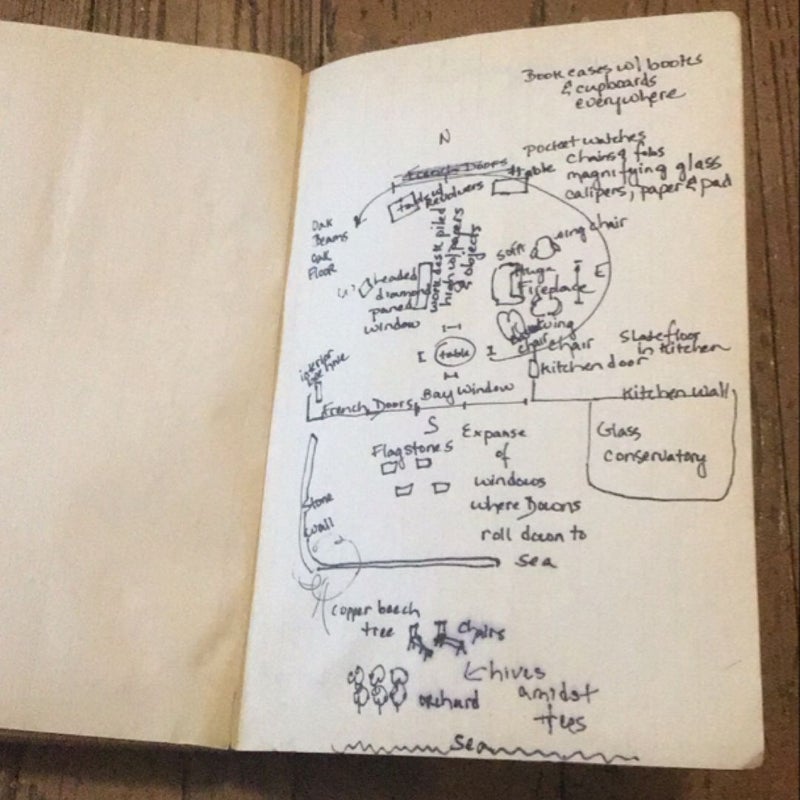 Bookcases w/ books
& cupboards
everywhere
N
French Doors
table
pocket watches
chains & fobs
magnifying glass
calipers, paper & pad
table w/
Revolvers
Oak
Beams
Oak
Floor
work desk piled
high w/ papers
& objects
wing chair
sofa
Huge
Fireplace
E
(W)
leaded
diamond
paned
window
wing
chair
chair
table
Slate floor
in Kitchen
Kitchen door
interior
bee hive
French Doors
Bay Window
Kitchen Wall
S
Flagstones
Expanse
of
windows
where Downs
roll down to
sea
Glass
Conservatory
Stone
wall
copper beech
tree
Chairs
hives
amidst
trees
orchard
Sea